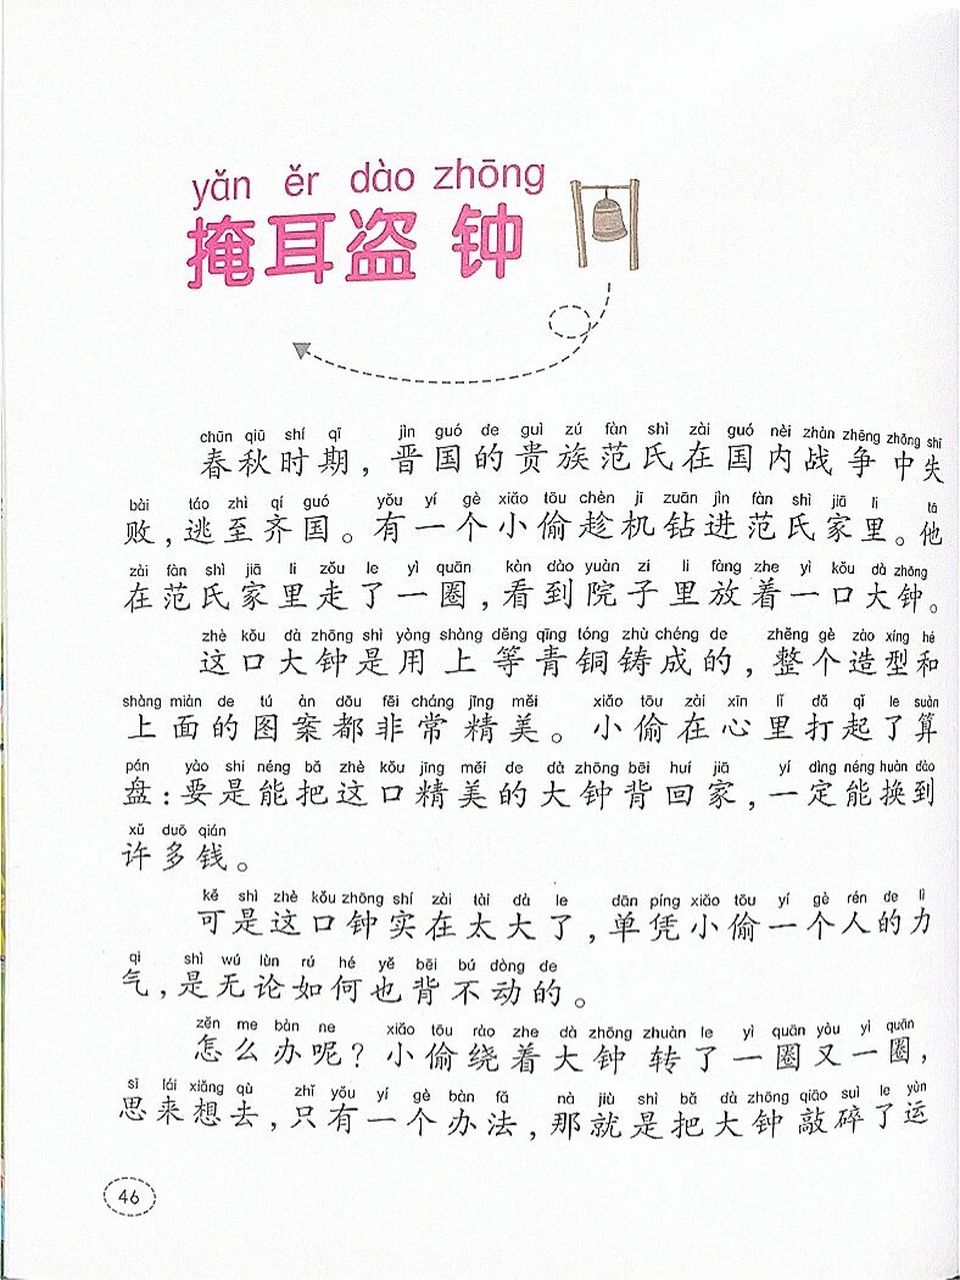 yǎn ěr dào zhōng
掩耳盗钟
chūn qiū shí qī jìn guó de guì zú fàn shì zài guó nèi zhàn zhēng zhōng shī
春秋时期，晋国的贵族范氏在国内战争中失
bài táo zhì qí guó yǒu yí gè xiǎo tōu chèn jī zuān jìn fàn shì jiā li tā
败，逃至齐国。有一个小偷趁机钻进范氏家里。他
zài fàn shì jiā li zǒu le yì quān kàn dào yuàn zi li fàng zhe yì kǒu dà zhōng
在范氏家里走了一圈，看到院子里放着一口大钟。
zhè kǒu dà zhōng shì yòng shàng děng qīng tóng zhù chéng de zhěng gè zào xíng hé
这口大钟是用上等青铜铸成的，整个造型和
shàng miàn de tú àn dōu fēi cháng jīng měi xiǎo tōu zài xīn lǐ dǎ qǐ le suàn
上面的图案都非常精美。小偷在心里打起了算
pán yào shi néng bǎ zhè kǒu jīng měi de dà zhōng bēi huí jiā yí dìng néng huàn dào
盘：要是能把这口精美的大钟背回家，一定能换到
xǔ duō qián
许多钱。
kě shì zhè kǒu zhōng shí zài tài dà le dān píng xiǎo tōu yí gè rén de lì
可是这口钟实在太大了，单凭小偷一个人的力
qi shì wú lùn rú hé yě bēi bú dòng de
气，是无论如何也背不动的。
zěn me bàn ne xiǎo tōu rào zhe dà zhōng zhuàn le yì quān yòu yì quān
怎么办呢？小偷绕着大钟转了一圈又一圈，
sī lái xiǎng qù zhǐ yǒu yí gè bàn fǎ nà jiù shì bǎ dà zhōng qiāo suì le yùn
思来想去，只有一个办法，那就是把大钟敲碎了运
46